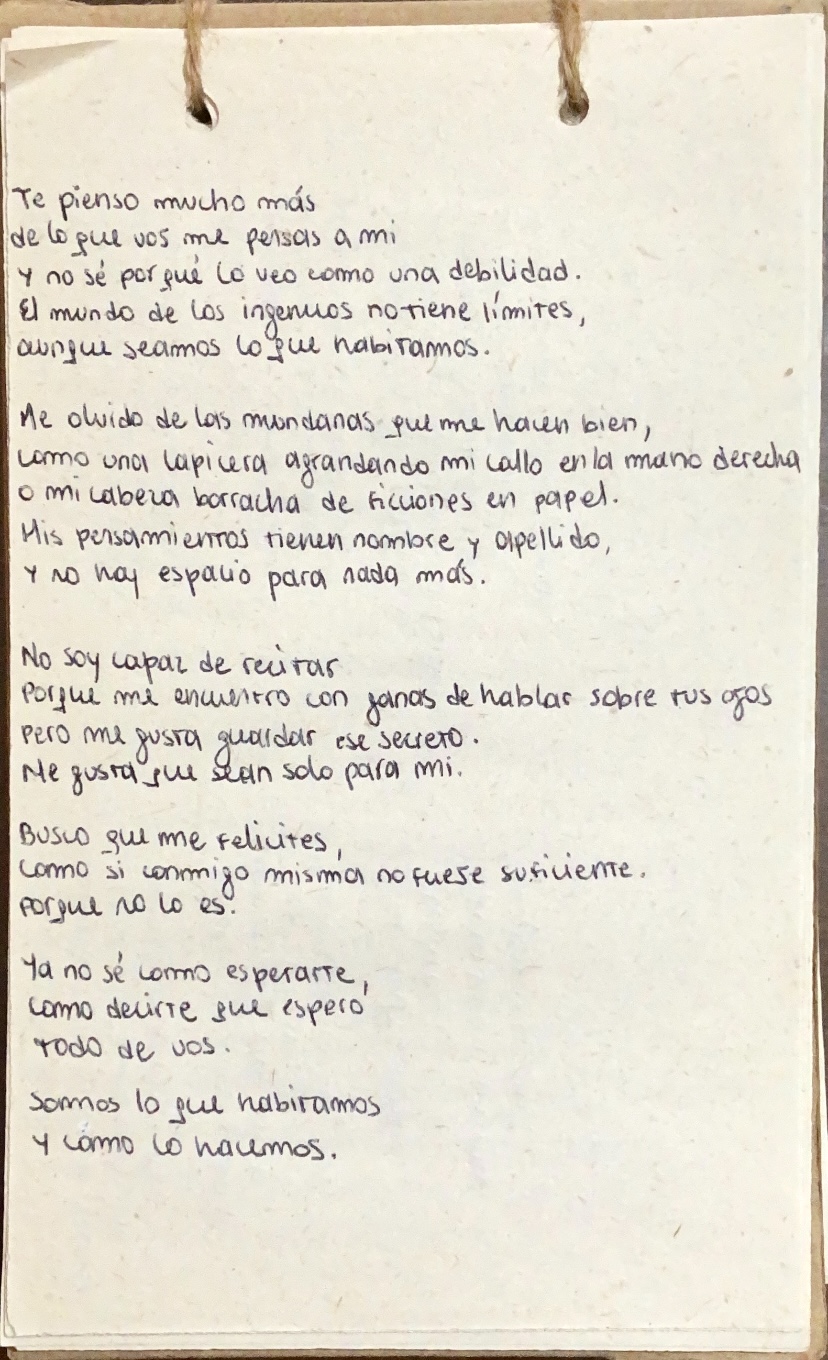 Te pienso mucho más
de lo que vos me pensas a mi
y no sé porqué lo veo como una debilidad.
El mundo de los ingenuos no tiene límites,
aunque seamos lo que habitamos.
Me olvido de las mundanas que me hacen bien,
como una lapicera agrandando mi callo en la mano derecha
o mi cabeza borracha de ficciones en papel.
Mis pensamientos tienen nombre y apellido,
y no hay espacio para nada más.
No soy capaz de recitar
porque me encuentro con ganas de hablar sobre tus ojos
pero me gusta guardar ese secreto.
Me gusta que sean solo para mi.
Busco que me felicites,
como si conmigo misma no fuese suficiente.
porque no lo es.
Ya no sé como esperarte,
como decirte que espero
todo de vos.
Somos lo que habitamos
y cómo lo hacemos.